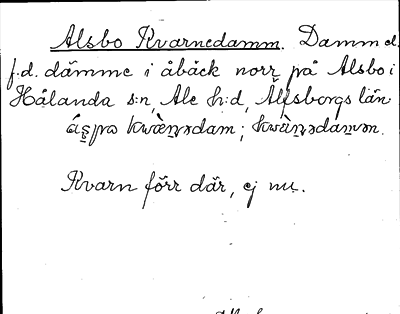 Alsbo Kvarnedamm. Damm el.
f.d. dämme i åbäck norr på Alsbo i
Hålanda s:n, Ale h:d, Älfsborgs län
Kvarn förr där, ej nu.